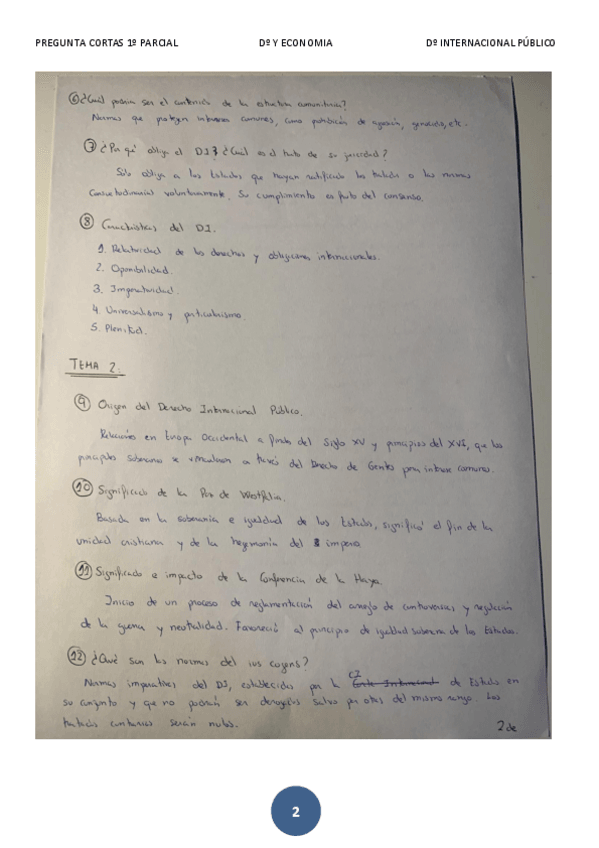 PREGUNTA CORTAS 1º PARCIAL Dº Y ECONOMIA Dº INTERNACIONAL PÚBLICO
⑥ ¿Cuál podría ser el contenido de la estructura comunitaria?
Normas que protegen intereses comunes, como prohibición de agresión, genocidio, etc.
⑦ ¿Por qué obliga el D.I? ¿Cuál es el fruto de su juricidad?
Sólo obliga a los Estados que hayan ratificado los tratados o las normas
consuetudinarias voluntariamente. Su cumplimiento es fruto del consenso.
⑧ Características del D.I.
1. Relatividad de los derechos y obligaciones internacionales.
2. Oponibilidad.
3. Imperatividad.
4. Universalismo y particularismo.
5. Plenitud.
TEMA 2.
⑨ Origen del Derecho Internacional Público.
Relaciones en Europa Occidental a finales del Siglo XV y principios del XVI, que los
principales soberanos se vinculaban a través del Derecho de Gentes para intereses comunes.
⑩ Significado de la Paz de Westfalia.
Basada en la soberanía e igualdad de los Estados, significó el fin de la
unidad cristiana y de la hegemonía del imperio
⑪ Significado e impacto de la Conferencia de la Haya.
Inicio de un proceso de reglamentación del arreglo de controversias y regulación
de la guerra y neutralidad. Favoreció al principio de igualdad soberana de los Estados.
⑫ ¿Qué son las normas del ius cogens?
Normas imperativas del DI, establecidas por la CI de Estados en
su conjunto y que no podrán ser derogadas salvo por otras del mismo rango. Los
tratados contrarios serán nulos.
2 de
2